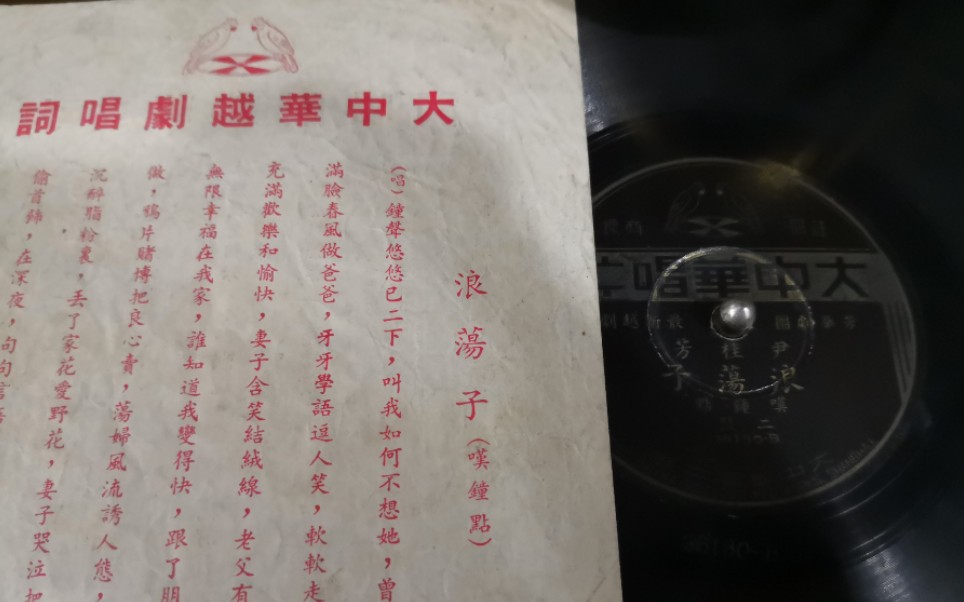 大中華越劇唱詞
浪蕩子(嘆鐘點)
(唱)鐘聲悠悠已二下,叫我如何不想她,曾
滿臉春風做爸爸,牙牙學語逗人笑,軟軟走
充滿歡樂和愉快,妻子含笑結絨線,老父有
無限幸福在我家,誰知道我變得快,跟了朋
做,鴉片賭博把良心賣,蕩婦風流誘人態,
沉醉脂粉裏,丟了家花愛野花,妻子哭泣把
偷首飾,在深夜,句句言語
大中華唱片
芳華劇團
尹桂芳
浪蕩子
嘆鐘
二